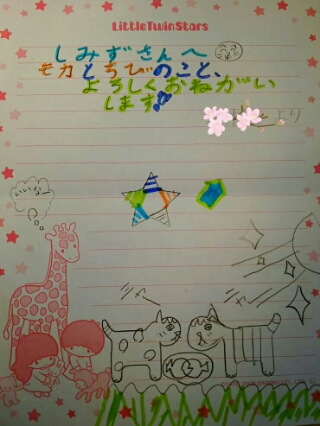 LittleTwinStars
しみずさんへ
モカとちびのこと、
よろしくおねがい
します
いいなー
ニャー
ニャー